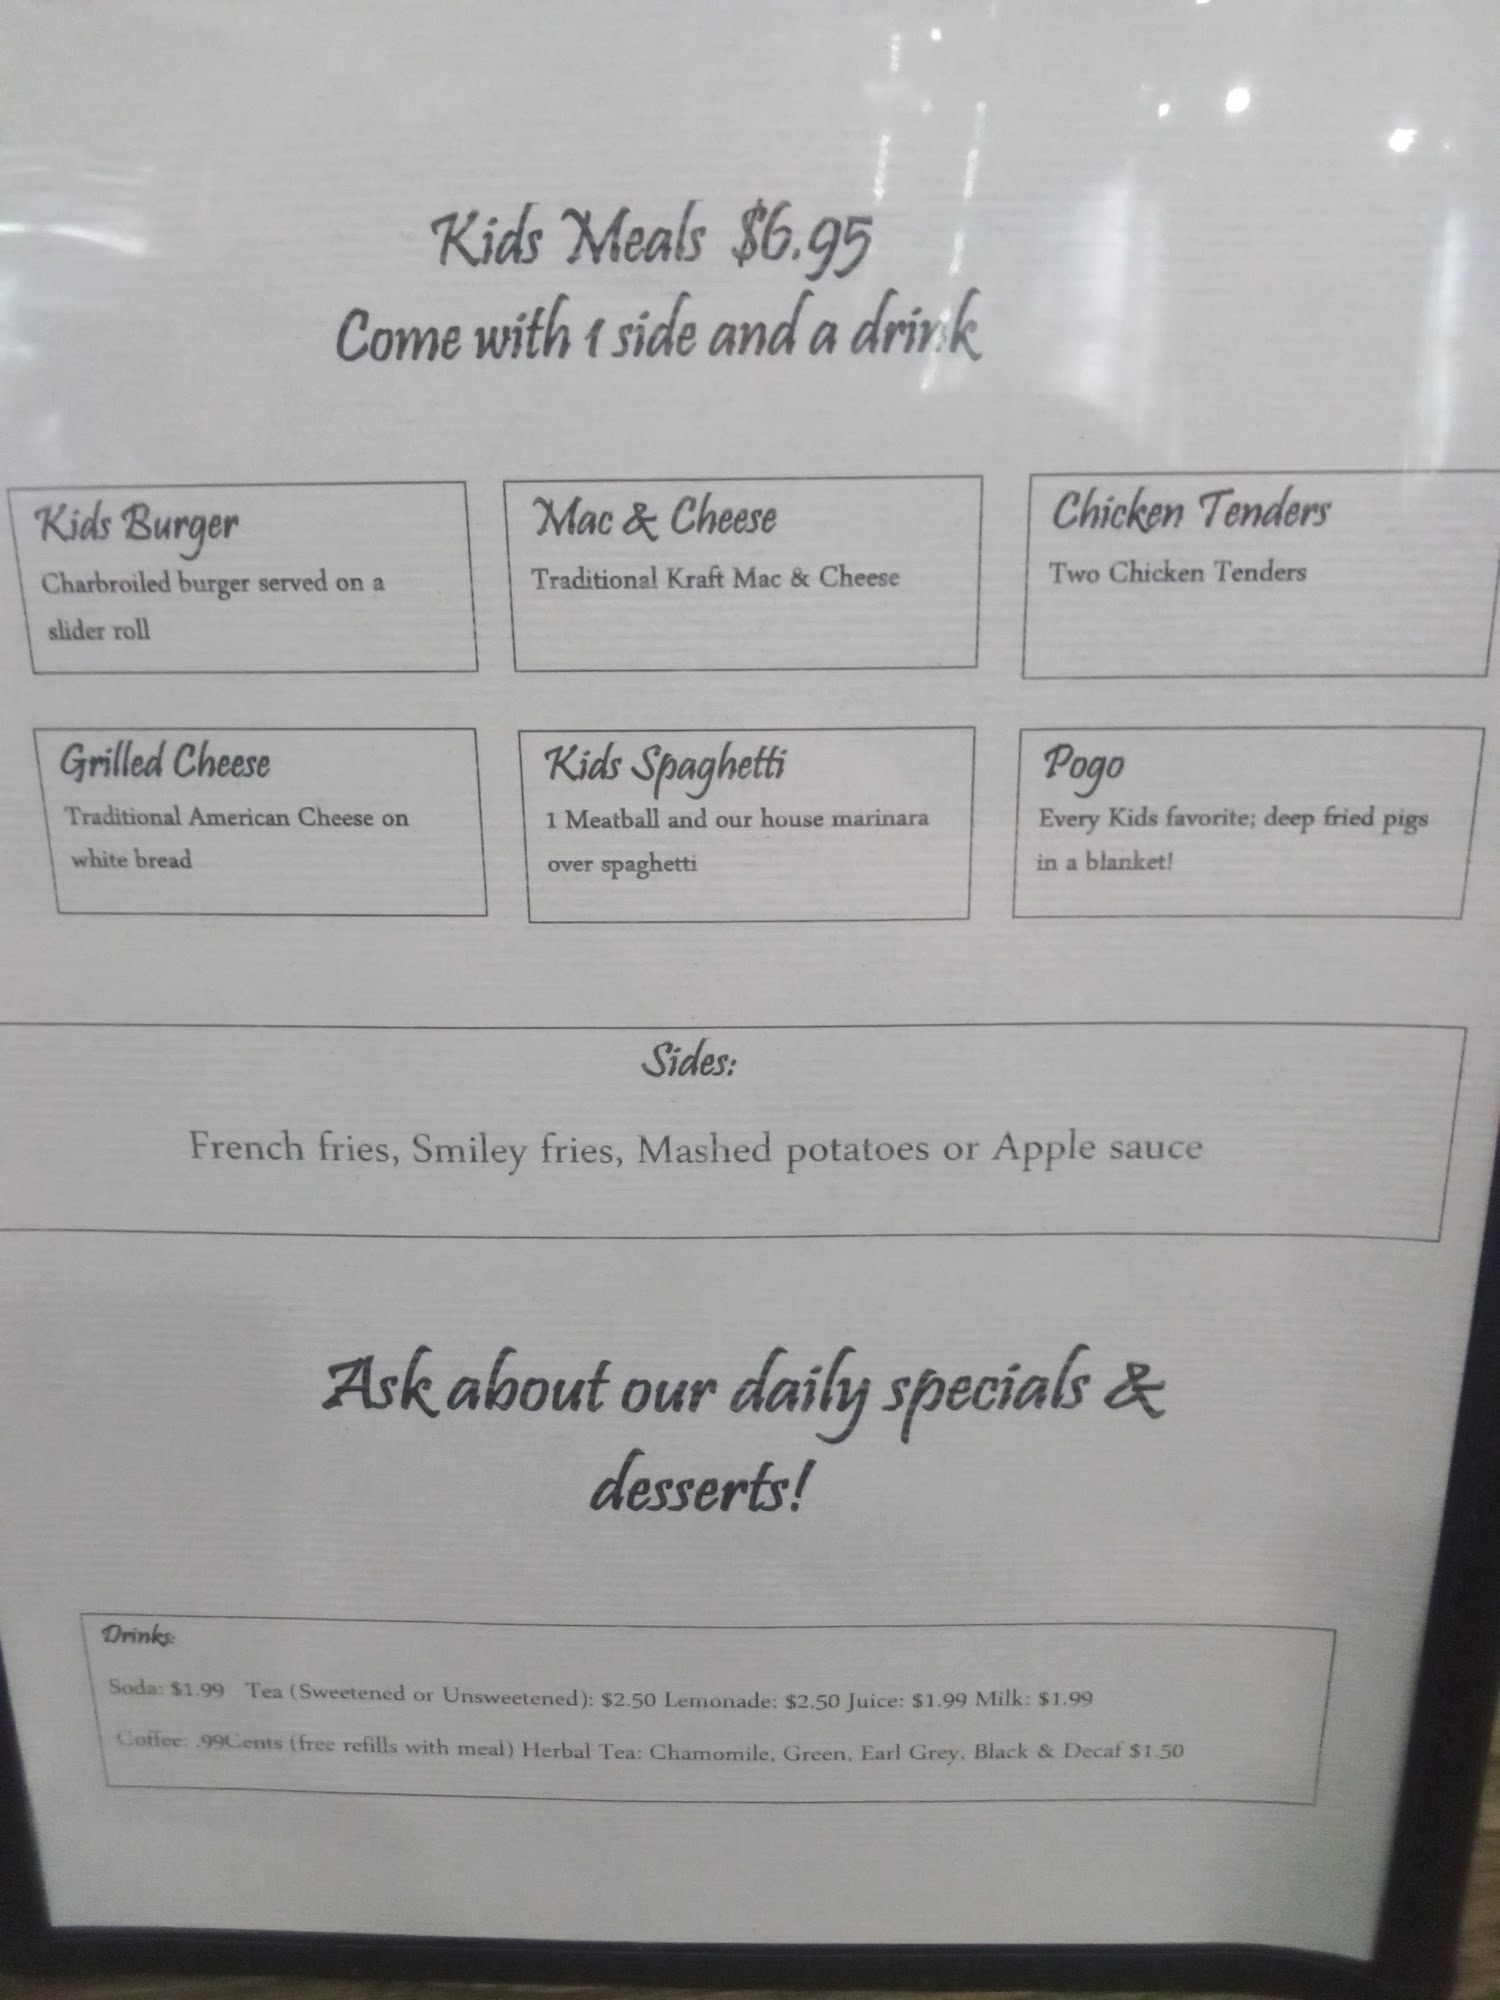 Kids Meals $6.95
Come with 1 side and a drink
Kids Burger
Charbroiled burger served on a
slider roll
Mac & Cheese
Traditional Kraft Mac & Cheese
Chicken Tenders
Two Chicken Tenders
Grilled Cheese
Traditional American Cheese on
white bread
Kids Spaghetti
1 Meatball and our house marinara
over spaghetti
Pogo
Every Kids favorite; deep fried pigs
in a blanket!
Sides:
French fries, Smiley fries, Mashed potatoes or Apple sauce
Ask about our daily specials &
desserts!
Drinks:
Soda: $1.99 Tea (Sweetened or Unsweetened): $2.50 Lemonade: $2.50 Juice: $1.99 Milk: $1.99
Coffee: .99Cents (free refills with meal) Herbal Tea: Chamomile, Green, Earl Grey, Black & Decaf $1.50